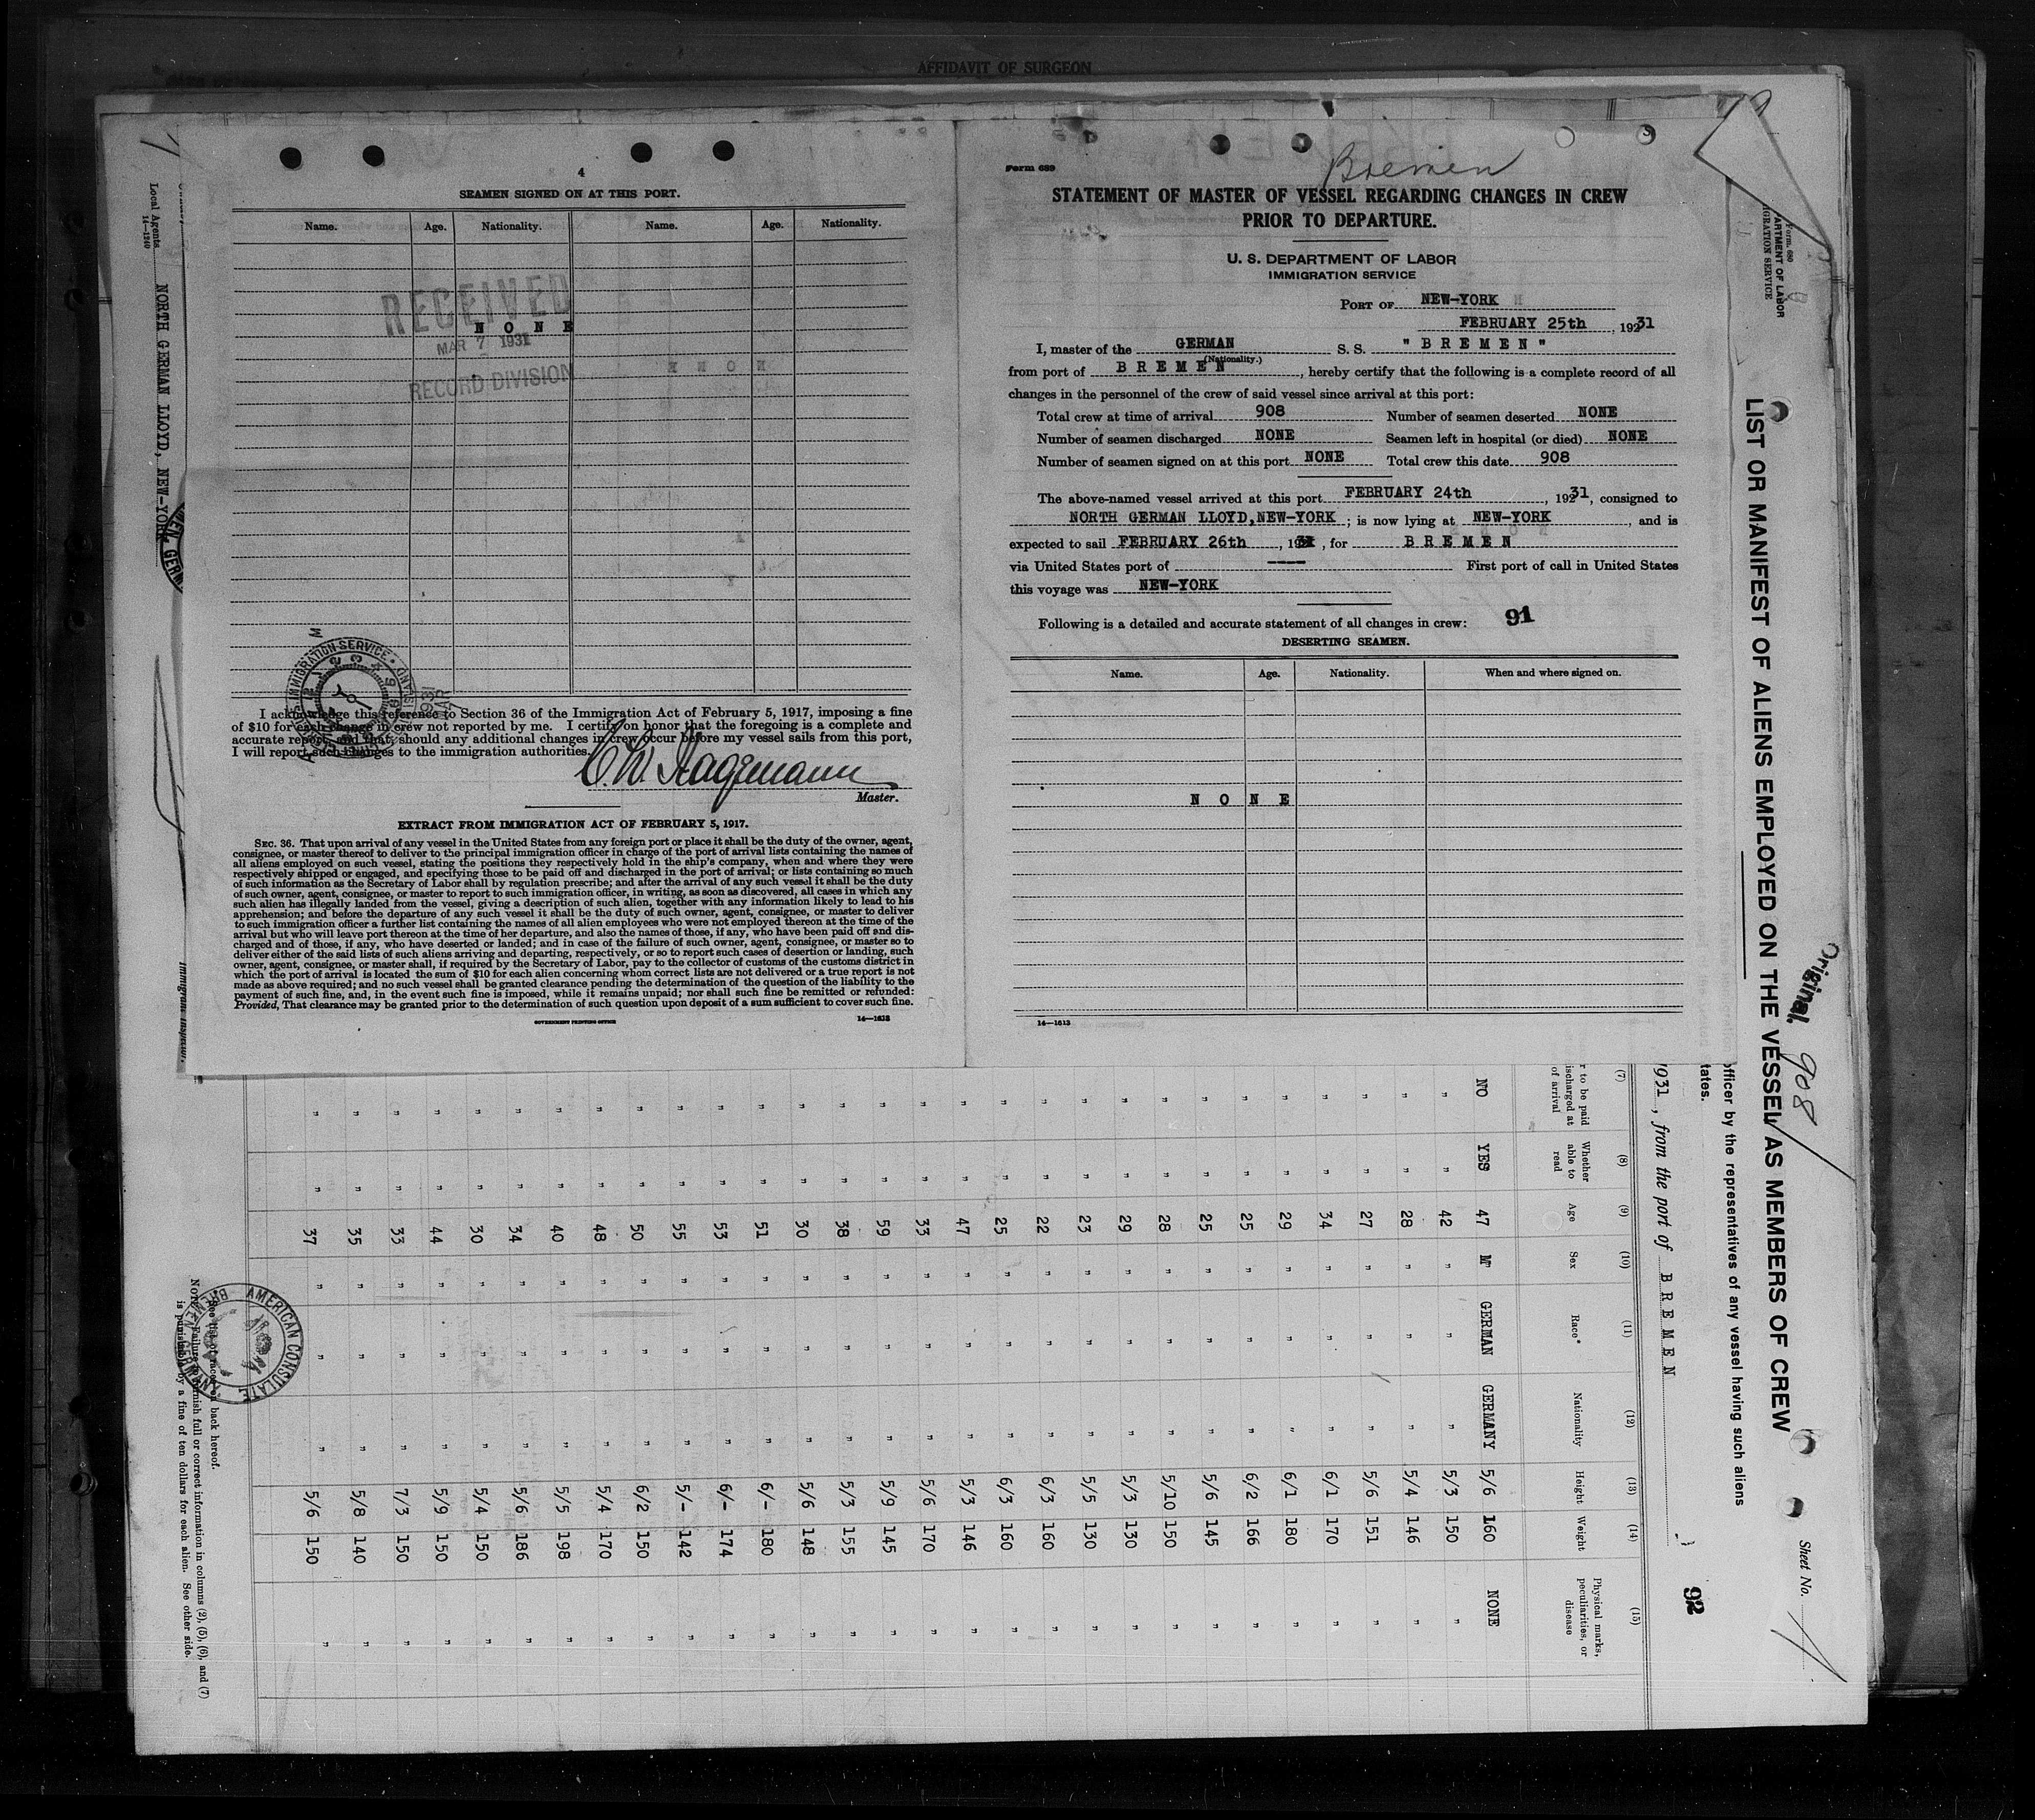 AFFIDAVIT OF SURGEON
4
SEAMEN SIGNED ON AT THIS PORT.
Name. Age. Nationality. Name. Age. Nationality.
RECEIVED
N O N E
MAR 7 1931
RECORD DIVISION
I acknowledge this reference to Section 36 of the Immigration Act of February 5, 1917, imposing a fine
of $10 for each change in crew not reported by me. I certify on honor that the foregoing is a complete and
accurate report, and that, should any additional changes in crew occur before my vessel sails from this port,
I will report such changes to the immigration authorities.
C. W. Hagemann
Master.
EXTRACT FROM IMMIGRATION ACT OF FEBRUARY 5, 1917.
SEC. 36. That upon arrival of any vessel in the United States from any foreign port or place it shall be the duty of the owner, agent,
consignee, or master thereof to deliver to the principal immigration officer in charge of the port of arrival lists containing the names of
all aliens employed on such vessel, stating the positions they respectively hold in the ship's company, when and where they were
respectively shipped or engaged, and specifying those to be paid off and discharged in the port of arrival; or lists containing so much
of such information as the Secretary of Labor shall by regulation prescribe; and after the arrival of any such vessel it shall be the duty
of such owner, agent, consignee, or master to report to such immigration officer, in writing, as soon as discovered, all cases in which any
such alien has illegally landed from the vessel, giving a description of such alien, together with any information likely to lead to his
apprehension; and before the departure of any such vessel it shall be the duty of such owner, agent, consignee, or master to deliver
to such immigration officer a further list containing the names of all alien employees who were not employed thereon at the time of the
arrival but who will leave port thereon at the time of her departure, and also the names of those, if any, who have been paid off and dis-
charged and of those, if any, who have deserted or landed; and in case of the failure of such owner, agent, consignee, or master so to
deliver either of the said lists of such aliens arriving and departing, respectively, or so to report such cases of desertion or landing, such
owner, agent, consignee, or master shall, if required by the Secretary of Labor, pay to the collector of customs of the customs district in
which the port of arrival is located the sum of $10 for each alien concerning whom correct lists are not delivered or a true report is not
made as above required; and no such vessel shall be granted clearance pending the determination of the question of the liability to the
payment of such fine, and, in the event such fine is imposed, while it remains unpaid; nor shall such fine be remitted or refunded:
Provided, That clearance may be granted prior to the determination of such question upon deposit of a sum sufficient to cover such fine.
GOVERNMENT PRINTING OFFICE 14—1613
Form 689
Bremen
STATEMENT OF MASTER OF VESSEL REGARDING CHANGES IN CREW
PRIOR TO DEPARTURE.
U. S. DEPARTMENT OF LABOR
IMMIGRATION SERVICE
PORT OF NEW-YORK
FEBRUARY 25th, 1931
I, master of the GERMAN S. S. " B R E M E N "
(Nationality.)
from port of B R E M E N, hereby certify that the following is a complete record of all
changes in the personnel of the crew of said vessel since arrival at this port:
Total crew at time of arrival 908 Number of seamen deserted NONE
Number of seamen discharged NONE Seamen left in hospital (or died) NONE
Number of seamen signed on at this port NONE Total crew this date 908
The above-named vessel arrived at this port FEBRUARY 24th, 1931, consigned to
NORTH GERMAN LLOYD, NEW-YORK; is now lying at NEW-YORK, and is
expected to sail FEBRUARY 26th, 1931, for B R E M E N
via United States port of ---- First port of call in United States
this voyage was NEW-YORK
Following is a detailed and accurate statement of all changes in crew: 91
DESERTING SEAMEN.
Name. Age. Nationality. When and where signed on.
N O N E
14—1613
Local Agents NORTH GERMAN LLOYD, NEW-YORK
14—1240
Immigrant Inspector.
Form 689
IGRATION SERVICE
LIST OR MANIFEST OF ALIENS EMPLOYED ON THE VESSEL AS MEMBERS OF CREW
Original.
908
Sheet No. 1
officer by the representatives of any vessel having such aliens
tates.
1931, from the port of B R E M E N
92
(7) (8) (9) (10) (11) (12) (13) (14) (15)
r to be paid
ischarged at
of arrival
Whether able to read
Age
Sex
Race*
Nationality
Height
Weight
Physical marks, peculiarities, or disease
NO YES 47 M GERMAN GERMANY 5/6 160 NONE
" " 42 " " " 5/3 150 "
" " 28 " " " 5/4 146 "
" " 27 " " " 5/6 151 "
" " 34 " " " 6/1 170 "
" " 29 " " " 6/1 180 "
" " 25 " " " 6/2 166 "
" " 25 " " " 5/6 145 "
" " 28 " " " 5/10 150 "
" " 29 " " " 5/3 130 "
" " 23 " " " 5/5 130 "
" " 22 " " " 6/3 160 "
" " 25 " " " 6/3 160 "
" " 47 " " " 5/3 146 "
" " 33 " " " 5/6 170 "
" " 59 " " " 5/9 145 "
" " 38 " " " 5/3 155 "
" " 30 " " " 5/6 148 "
" " 51 " " " 6/- 180 "
" " 53 " " " 6/- 174 "
" " 55 " " " 5/- 142 "
" " 50 " " " 6/2 150 "
" " 48 " " " 5/4 170 "
" " 40 " " " 5/5 198 "
" " 34 " " " 5/6 186 "
" " 30 " " " 5/4 150 "
" " 44 " " " 5/9 150 "
" " 33 " " " 7/3 150 "
" " 35 " " " 5/8 140 "
" " 37 " " " 5/6 150 "
AMERICAN CONSULATE
BREMEN, GERMANY
back hereof.
full or correct information in columns (2), (5), (6), and (7)
is punishable by a fine of ten dollars for each alien. See other side.